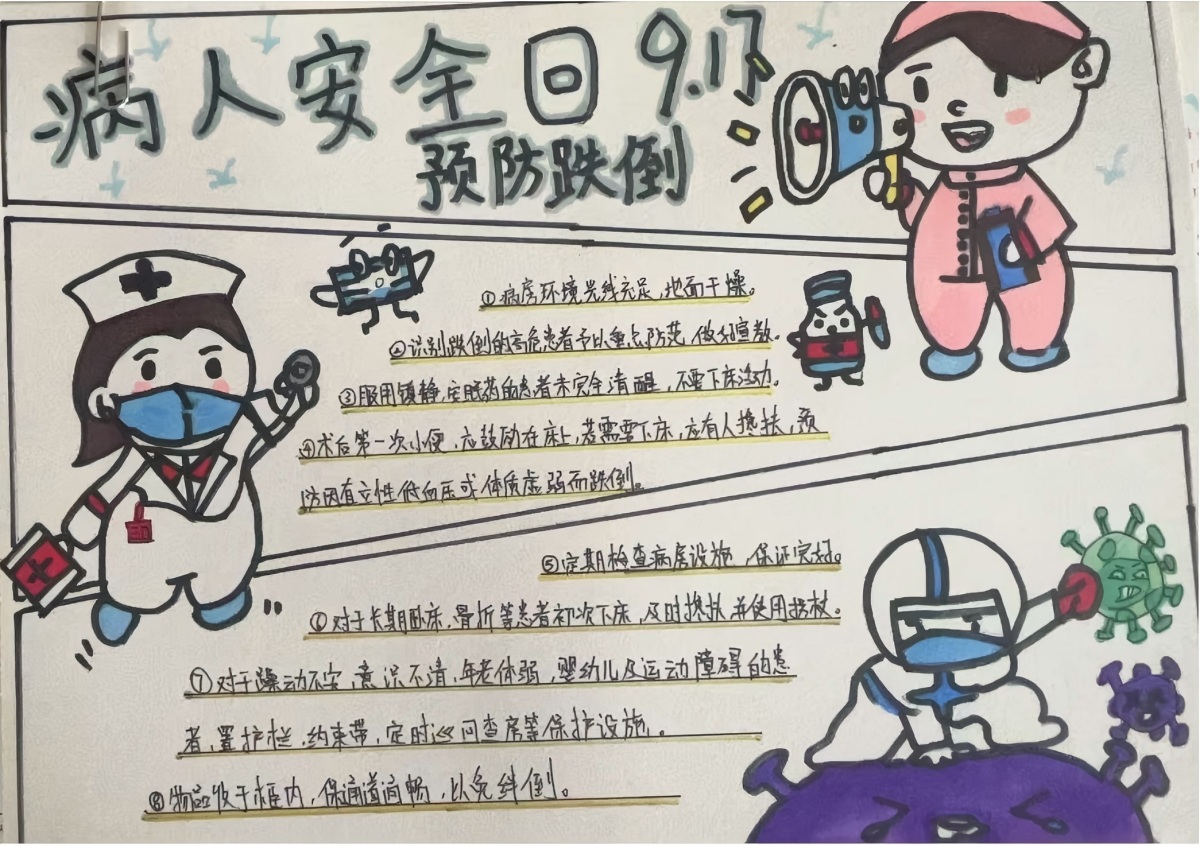 病人安全日 9.17
预防跌倒
①病房环境光线充足,地面干燥。
②识别跌倒的高危患者予以重点防范,做好宣教。
③服用镇静、安眠药的患者未完全清醒,不要下床活动。
④术后第一次小便,应鼓励在床上,若需要下床,应有人搀扶,预
防因直立性低血压或体质虚弱而跌倒。
⑤定期检查病房设施,保证完好。
⑥对于长期卧床、骨折等患者初次下床,及时搀扶并使用拐杖。
⑦对于躁动不安、意识不清、年老体弱、婴幼儿及运动障碍的患
者,置护栏、约束带,定时巡问查房等保护设施。
⑧物品收于柜内,保通道通畅,以免绊倒。